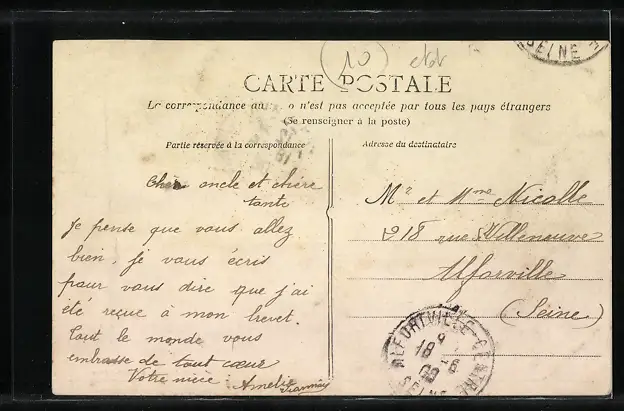 (10)
SEINE
CARTE POSTALE
La correspondance au o n'est pas acceptée par tous les pays étrangers
(Se renseigner à la poste)
Partie réservée à la correspondance
Adresse du destinataire
Cher oncle et chère
tante
Je pense que vous allez
bien. je vous écris
pour vous dire que j'ai
été reçue à mon brevet.
Tout le monde vous
embrasse de tout cœur
Votre nièce Amélie
Mr et Mme Nicolle
218 rue Villeneuve
Alforville
(Seine)
ALFORTVILLE CENTRE
SEINE